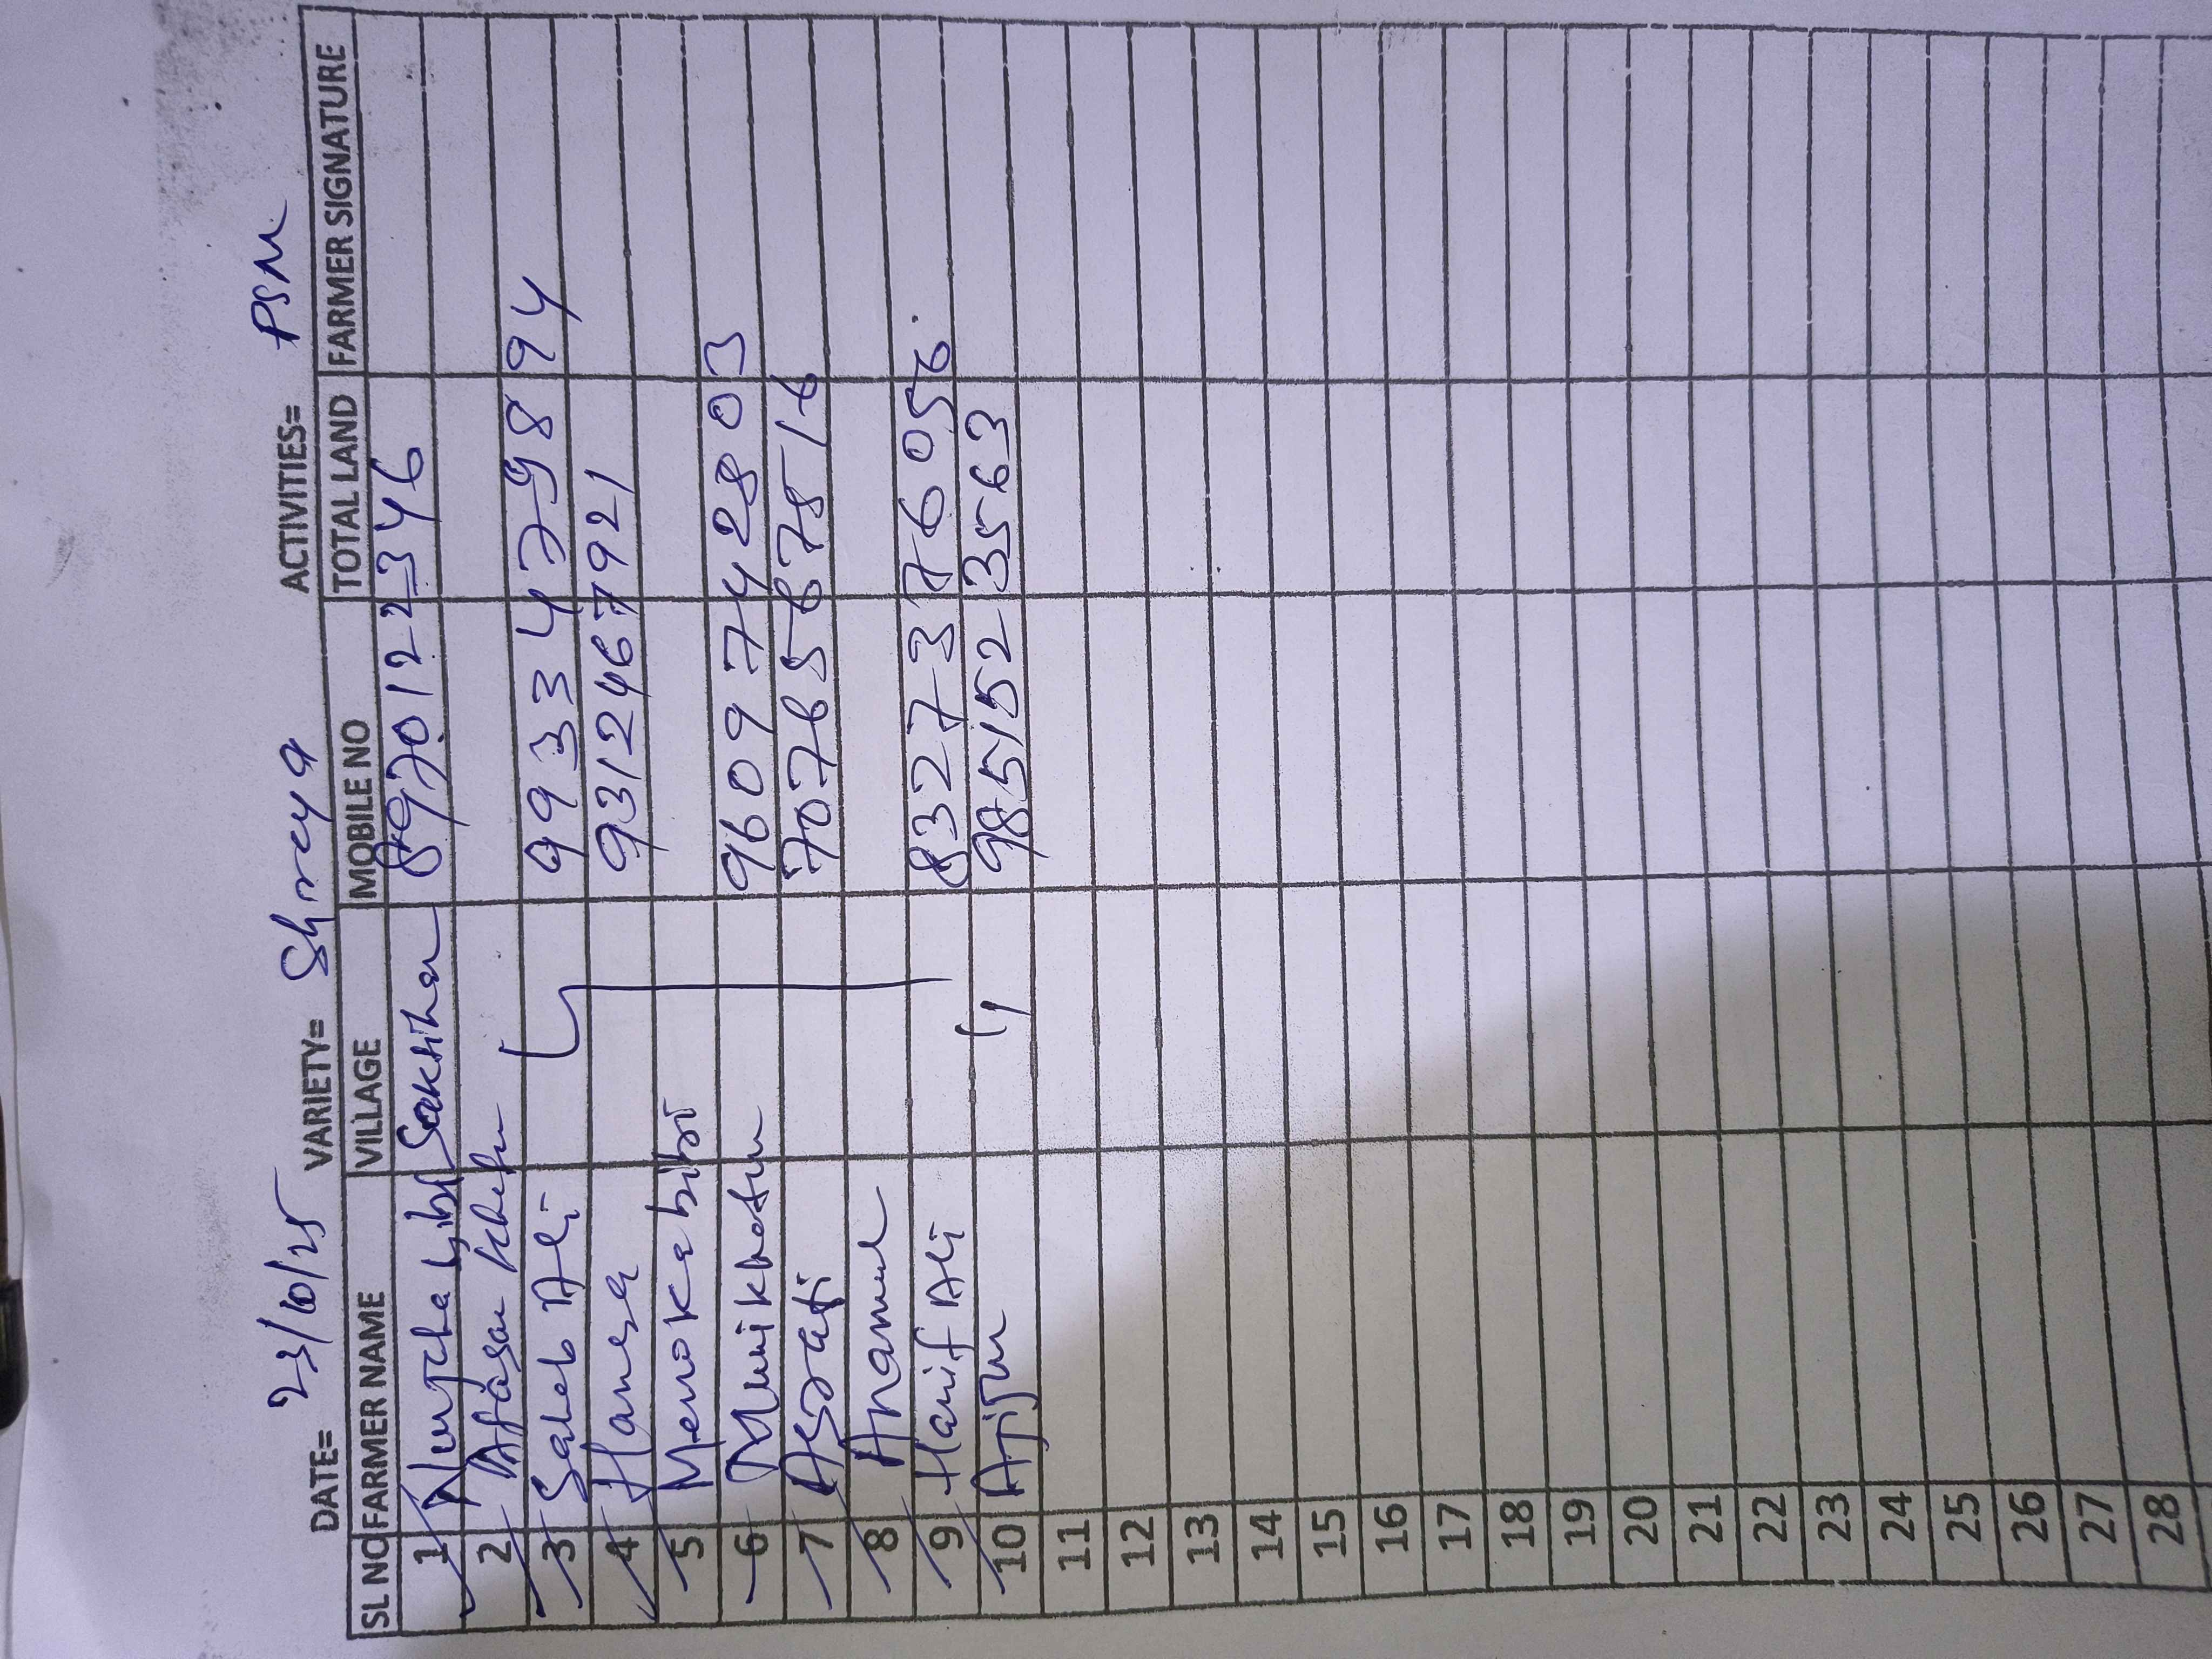 DATE= 23/10/25 VARIETY= Shreya ACTIVITIES= PSM
SL NO FARMER NAME VILLAGE MOBILE NO TOTAL LAND FARMER SIGNATURE
1 bibi Sakhihar 8970122346
2
3 Saheb Ali 9933447298 94
4 Hanesa 9312467921
5 Menoka bibi
6 Muni khatun 9609742803
7 Asrafi
8 Anamul
9 Hanif Ali 8327376056
10 Arjun 9851523563
11
12
13
14
15
16
17
18
19
20
21
22
23
24
25
26
27
28